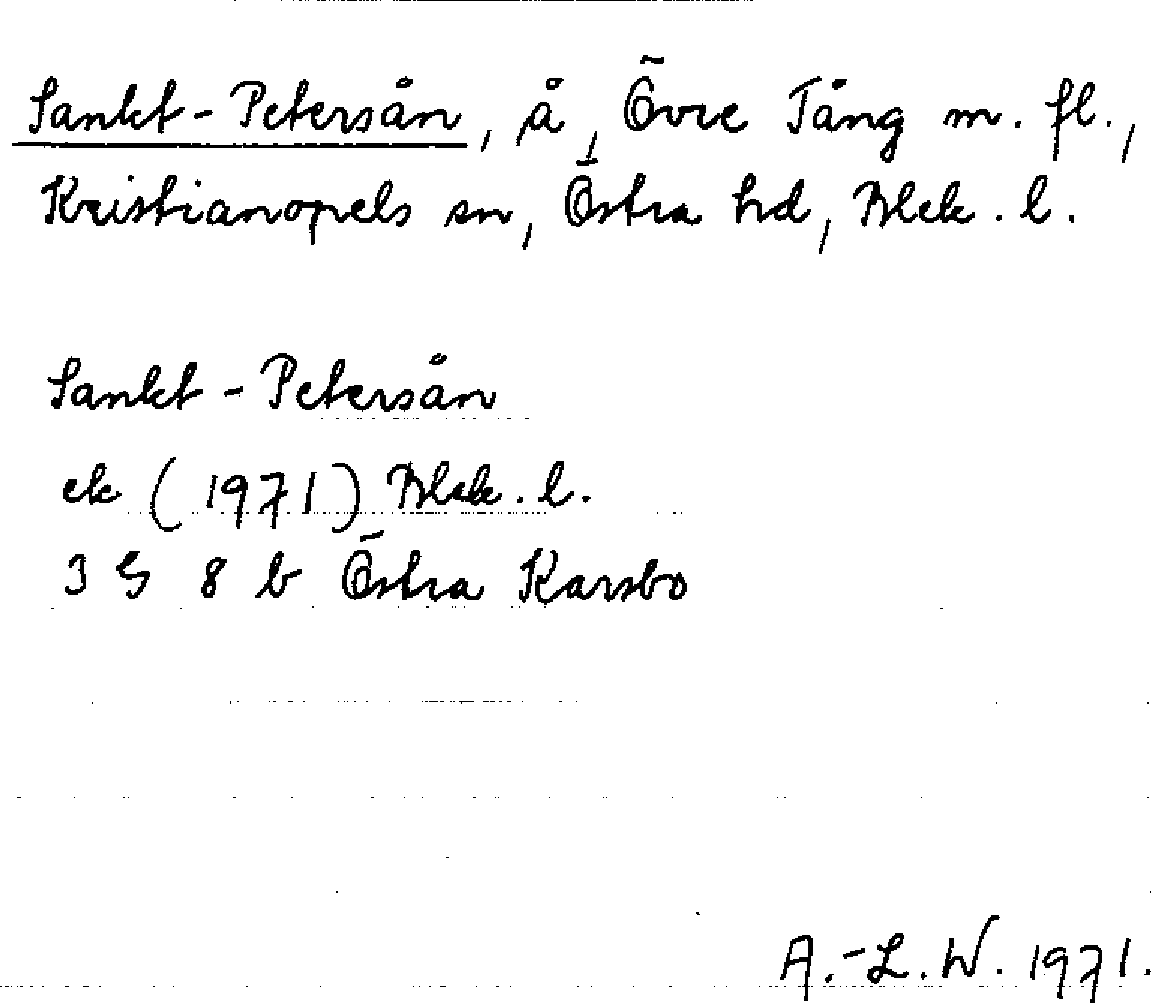 Sankt-Petersån, å, Övre Tång m. fl.,
Kristianopels sn, Östra hd, Blek. l.
Sankt-Petersån
ek (1971) Blek. l.
3 G 8 b Östra Karsbo
A.-L. W. 1971.